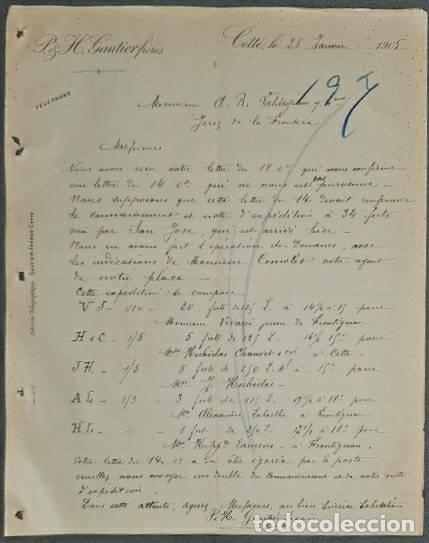 P. & H. Gautier frères
Cette, le 28 Janvier 1905
TÉLÉPHONE
197
Monsieur A. R. Valdespino y Hno
Jerez de la Frontera
Messieurs
Nous avons reçu votre lettre du 18 ct qui nous confirme
une lettre du 14 ct. qui ne nous est pas parvenue —
Nous supposons que cette lettre du 14 devait renfermer
le connaissement et note d'expédition à 34 futs
vin par San José, qui est arrivé hier —
Nous en avons fait l'opération de Douanes, avec
les indications de Monsieur votre agent
de notre place —
Cette expédition se compose
VJ — 1/20 — 20 futs de 125 L. à 14½ à 15° pour
Monsieur Vivarès jeune de Frontignan
H & C — 1/5 5 futs de 125 L. 14½ 15° pour
Huhidos Chauvet & Cie à Cette.
JH — 1/5 5 futs de 250 L. à 15° pour
J. Huhidos —
AL — 1/3 — 3 futs de 125 L. 17½ à 18° pour
Alexandre Labarthe à Frontignan
HL — 1 fut de 250 L. 17½ à 18° pour
Hippte à Frontignan.
Votre lettre du 14 ct a du être égarée par la poste
veuillez nous envoyer un double du connaissement et de votre note
d'expédition.
Dans cette attente, agréez Messieurs, nos bien sincères salutations
P. & H. Gautier frères
Adresse Télégraphique GAUTIER-FRÈRES CETTE
todocoleccion